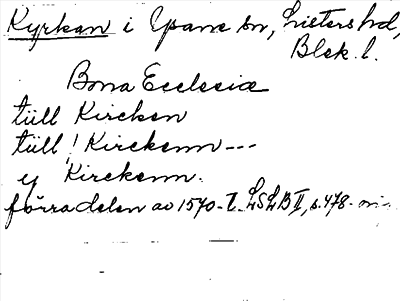 Kyrkan i Ysane sn, Listers hd,
Blek. l.
Bona Ecclesiæ
tüll Kircken
tüll ! Kirckenn ---
y Kirckenn.
förra delen av 1570-t. LSLB II, s. 478